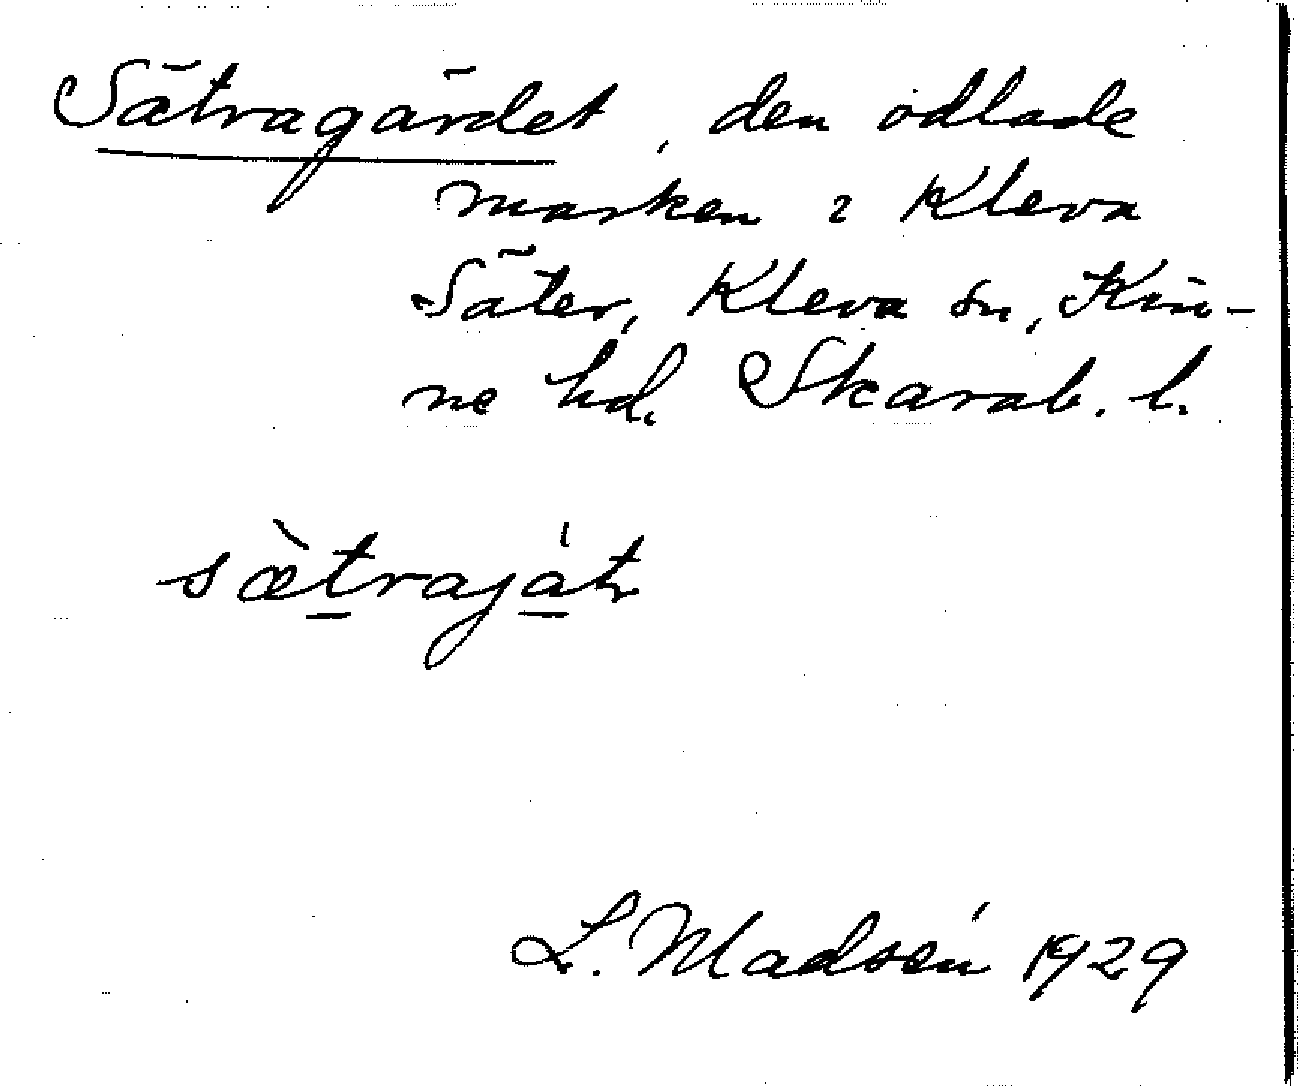 Sätragärdet, den odlade
marken i Kleva
Säter, Kleva sn, Kin-
ne hd. Skarab. l.
sæ̀traját
L. Madsén 1929